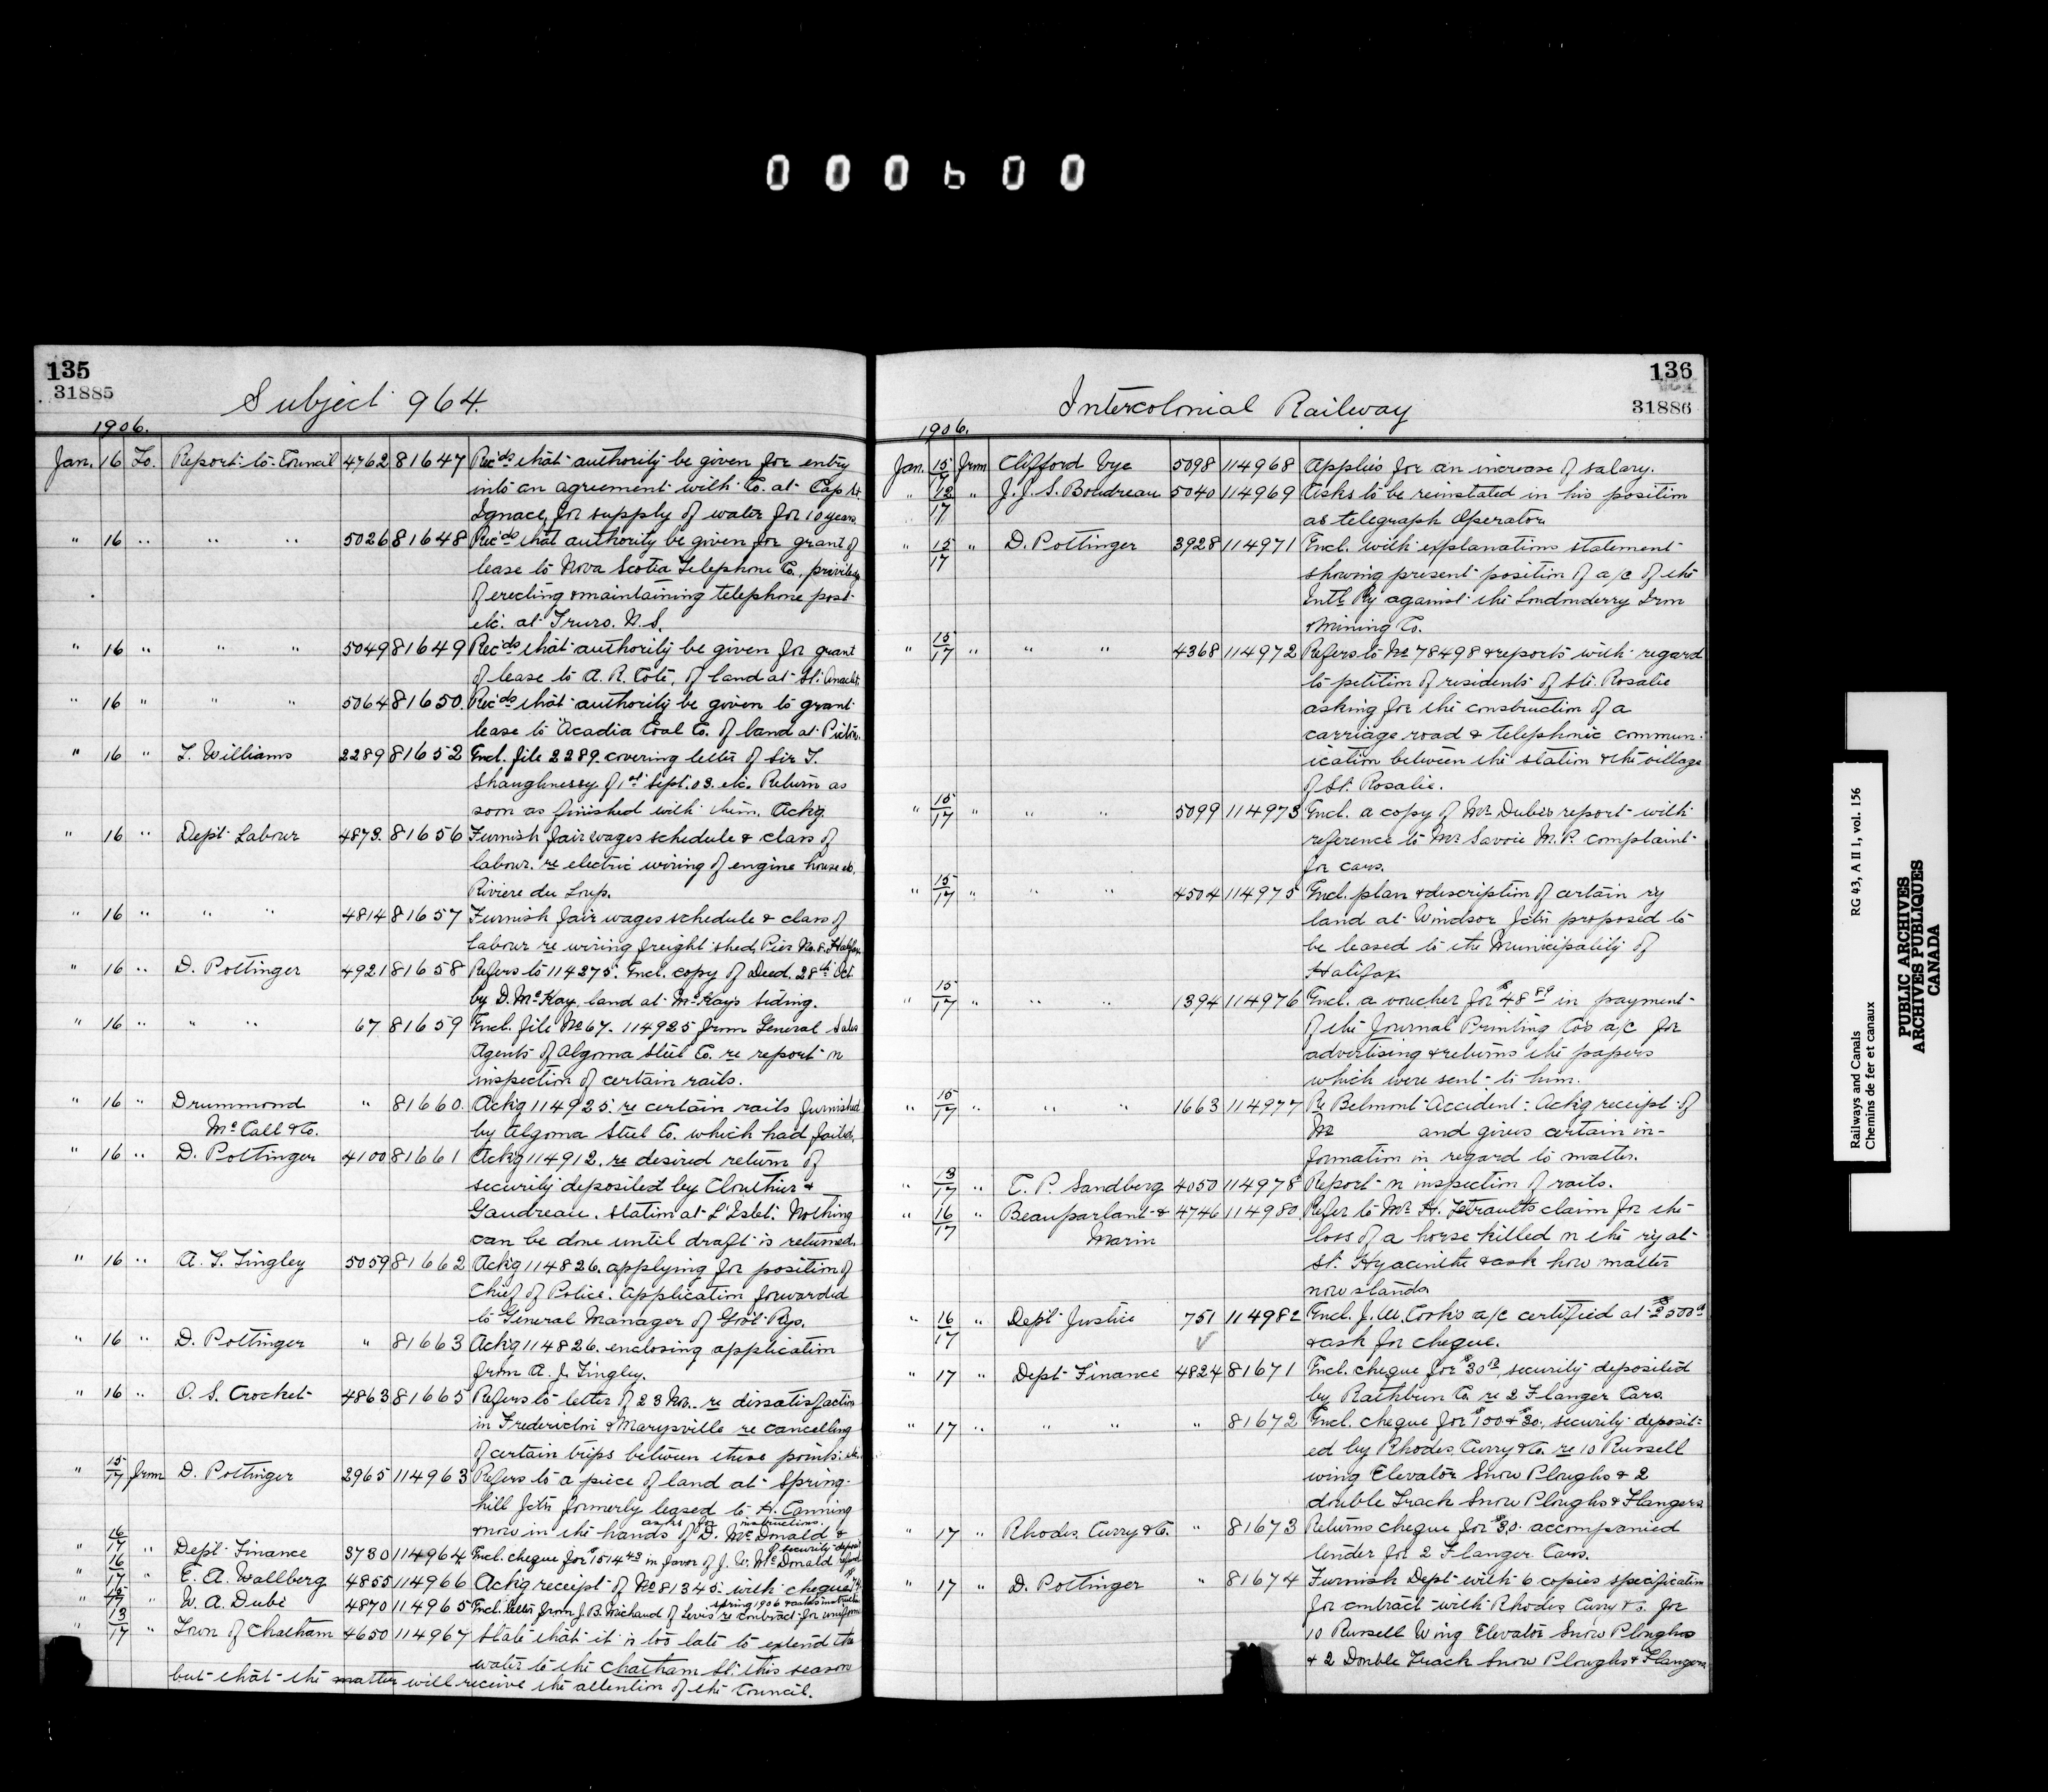 000600
135
31885
Subject 964.
1906.
Jan. 16 To. Report to Council 4762 81647 Rec'ds that authority be given for entry
into an agreement with Co. at Cap St.
Ignace, for supply of water for 10 years.
" 16 " " " 5026 81648 Rec'ds that authority be given for grant of
lease to Nova Scotia Telephone Co., privilege
of erecting & maintaining telephone post
etc. at Truro. N.S.
" 16 " " " 5049 81649 Rec'ds that authority be given for grant
of lease to A. R. Coté, of land at St.
" 16 " " " 5064 81650. Rec'ds that authority be given to grant
lease to Acadia Coal Co. of land at Pictou.
" 16 " T. Williams 2289 81652 Encl. file 2289 covering letter of Sir T.
Shaughnessy of 1st Sept. 03. etc. Return as
soon as finished with them. Ackg.
" 16 " Dept. Labour 4873. 81656 Furnish fair wages schedule & class of
labour. re electric wiring of engine house etc.
Riviere du Loup.
" 16 " " " 4814 81657 Furnish fair wages schedule & class of
labour re wiring freight shed, Pier No. 8. Halifax
" 16 " D. Pottinger 4921 81658 Refers to 114275. Encl. copy of Deed. 28th Oct
by D. McKay. land at McKays Siding.
" 16 " " " 67 81659 Encl. file No 67. 114925 from General Sales
Agents of Algoma Steel Co. re report on
inspection of certain rails.
" 16 " Drummond " 81660. Ackg 114925. re certain rails furnished
McCall & Co. by Algoma Steel Co. which had failed.
" 16 " D. Pottinger 4100 81661 Ackg 114912. re desired return of
security deposited by Clouthier &
Gaudreau. station at L'Islet. Nothing
can be done until draft is returned.
" 16 " A. T. Tingley 5059 81662 Ackg 114826. applying for position of
Chief of Police. Application forwarded
to General Manager of Govt. Rys.
" 16 " D. Pottinger " 81663 Ackg 114826. enclosing application
from A. J. Tingley.
" 16 " O. S. Crocket 4863 81665 Refers to letter of 23 Nov. re dissatisfaction
in Fredericton & Marysville re cancelling
of certain trips between these points. etc.
" 15/17 from D. Pottinger 2965 114963 Refers to a piece of land at Spring-
hill Jctn formerly leased to A. Canning
& now in the hands of D. McDonald &
asks for instructions.
" 16/17 " Dept. Finance 3730 114964 Encl. cheque for $1514 43 in favor of J. W. McDonald refund
of security deposit
" 16/17 " E. A. Wallberg 4855 114966 Ackg receipt of No 81345. with cheque
" 15/17 " W. A. Dubé 4870 114965 Encl. letter from J. B. Michaud of Levis re contract for uniforms
spring 1906 & asks instructions
" 13/17 " Town of Chatham 4650 114967 State that it is too late to extend the
water to the Chatham St. this season
but that the matter will receive the attention of the Council.
136
31886
Intercolonial Railway
1906.
Jan. 15/17 from Clifford Cye 5098 114968 Applies for an increase of salary.
" 12/17 " J. J. S. Boudreau 5040 114969 Asks to be reinstated in his position
as telegraph Operator.
" 15/17 " D. Pottinger 3928 114971 Encl. with explanations statement
showing present position of a/c of the
Intl. Ry against the Londonderry Iron
& Mining Co.
" 15/17 " " " 4368 114972 Refers to No 78498 & reports with regard
to petition of residents of Ste. Rosalie
asking for the construction of a
carriage road & telephonic commun-
ication between the station & the village
of St. Rosalie.
" 15/17 " " " 5099 114973 Encl. a copy of Mr Dubé's report with
reference to Mr Savoie M.P. complaint
for cars.
" 15/17 " " " 4504 114975 Encl. plan & description of certain ry
land at Windsor Jctn proposed to
be leased to the Municipality of
Halifax.
" 15/17 " " " 1394 114976 Encl. a voucher for $48 89 in payment
of the Journal Printing Co's a/c for
advertising & returns the papers
which were sent to him.
" 15/17 " " " 1663 114977 Re Belmont Accident. Ackg receipt of
No and gives certain in-
formation in regard to matter.
" 13/17 " C. P. Sandberg 4050 114978 Report on inspection of rails.
" 16/17 " Beauparlant & 4746 114980 Refer to Mr. H. Tetraults claim for the
Marin loss of a horse killed on the ry at
St. Hyacinthe & ask how matter
now stands
" 16/17 " Dept. Justice 751 114982 Encl. J. W. Cooks a/c certified at $2500
& ask for cheque.
" 17 " Dept. Finance 4824 81671 Encl. cheque for $30, security deposited
by Rathbun Co. re 2 Flanger Cars.
" 17 " " " " 81672 Encl. cheque for $100 & $30. security deposit-
ed by Rhodes, Curry & Co. re 10 Russell
wing Elevator Snow Ploughs & 2
double Track Snow Ploughs & Flangers
" 17 " Rhodes, Curry & Co. " 81673 Returns cheque for $30. accompanied
tender for 2 Flanger Cars.
" 17 " D. Pottinger " 81674 Furnish Dept. with 6 copies specification
for contract with Rhodes Curry & Co. for
10 Russell Wing Elevator Snow Ploughs
& 2 Double Track Snow Ploughs & Flangers
RG 43, A II 1, vol. 156
Railways and Canals
Chemins de fer et canaux
PUBLIC ARCHIVES
ARCHIVES PUBLIQUES
CANADA